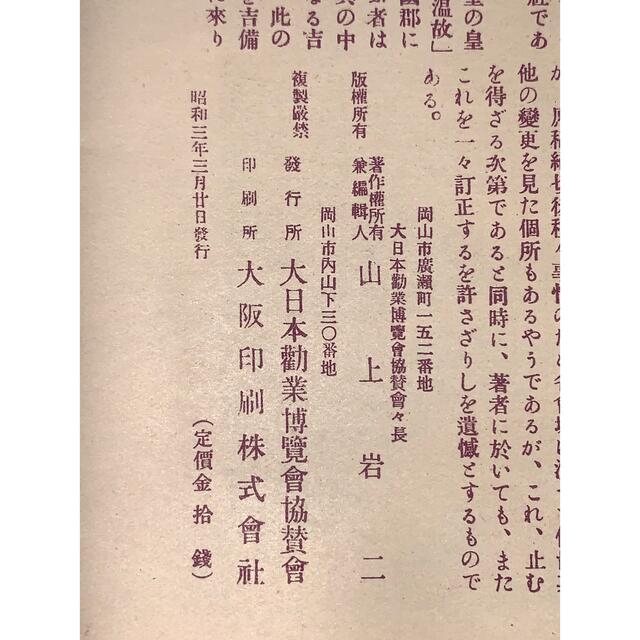 が、原稿締切後種々事情のため
他の變更を見た個所もあるやうであるが、これ、止む
を得ざる次第であると同時に、著者に於いても、また
これを一々訂正するを許さざりしを遺憾とするもので
ある。
社であ
の皇
温故」
國郡に
者は
の中
なる吉
此の
吉備
に來り
岡山市廣瀬町一五二番地
大日本勸業博覽會協賛會々長
版權所有
著作權所有
兼編輯人
山上岩二
岡山市內山下三〇番地
複製嚴禁
發行所
大日本勸業博覽會協賛會
印刷所
大阪印刷株式會社
昭和三年三月廿日發行
(定價金拾錢)